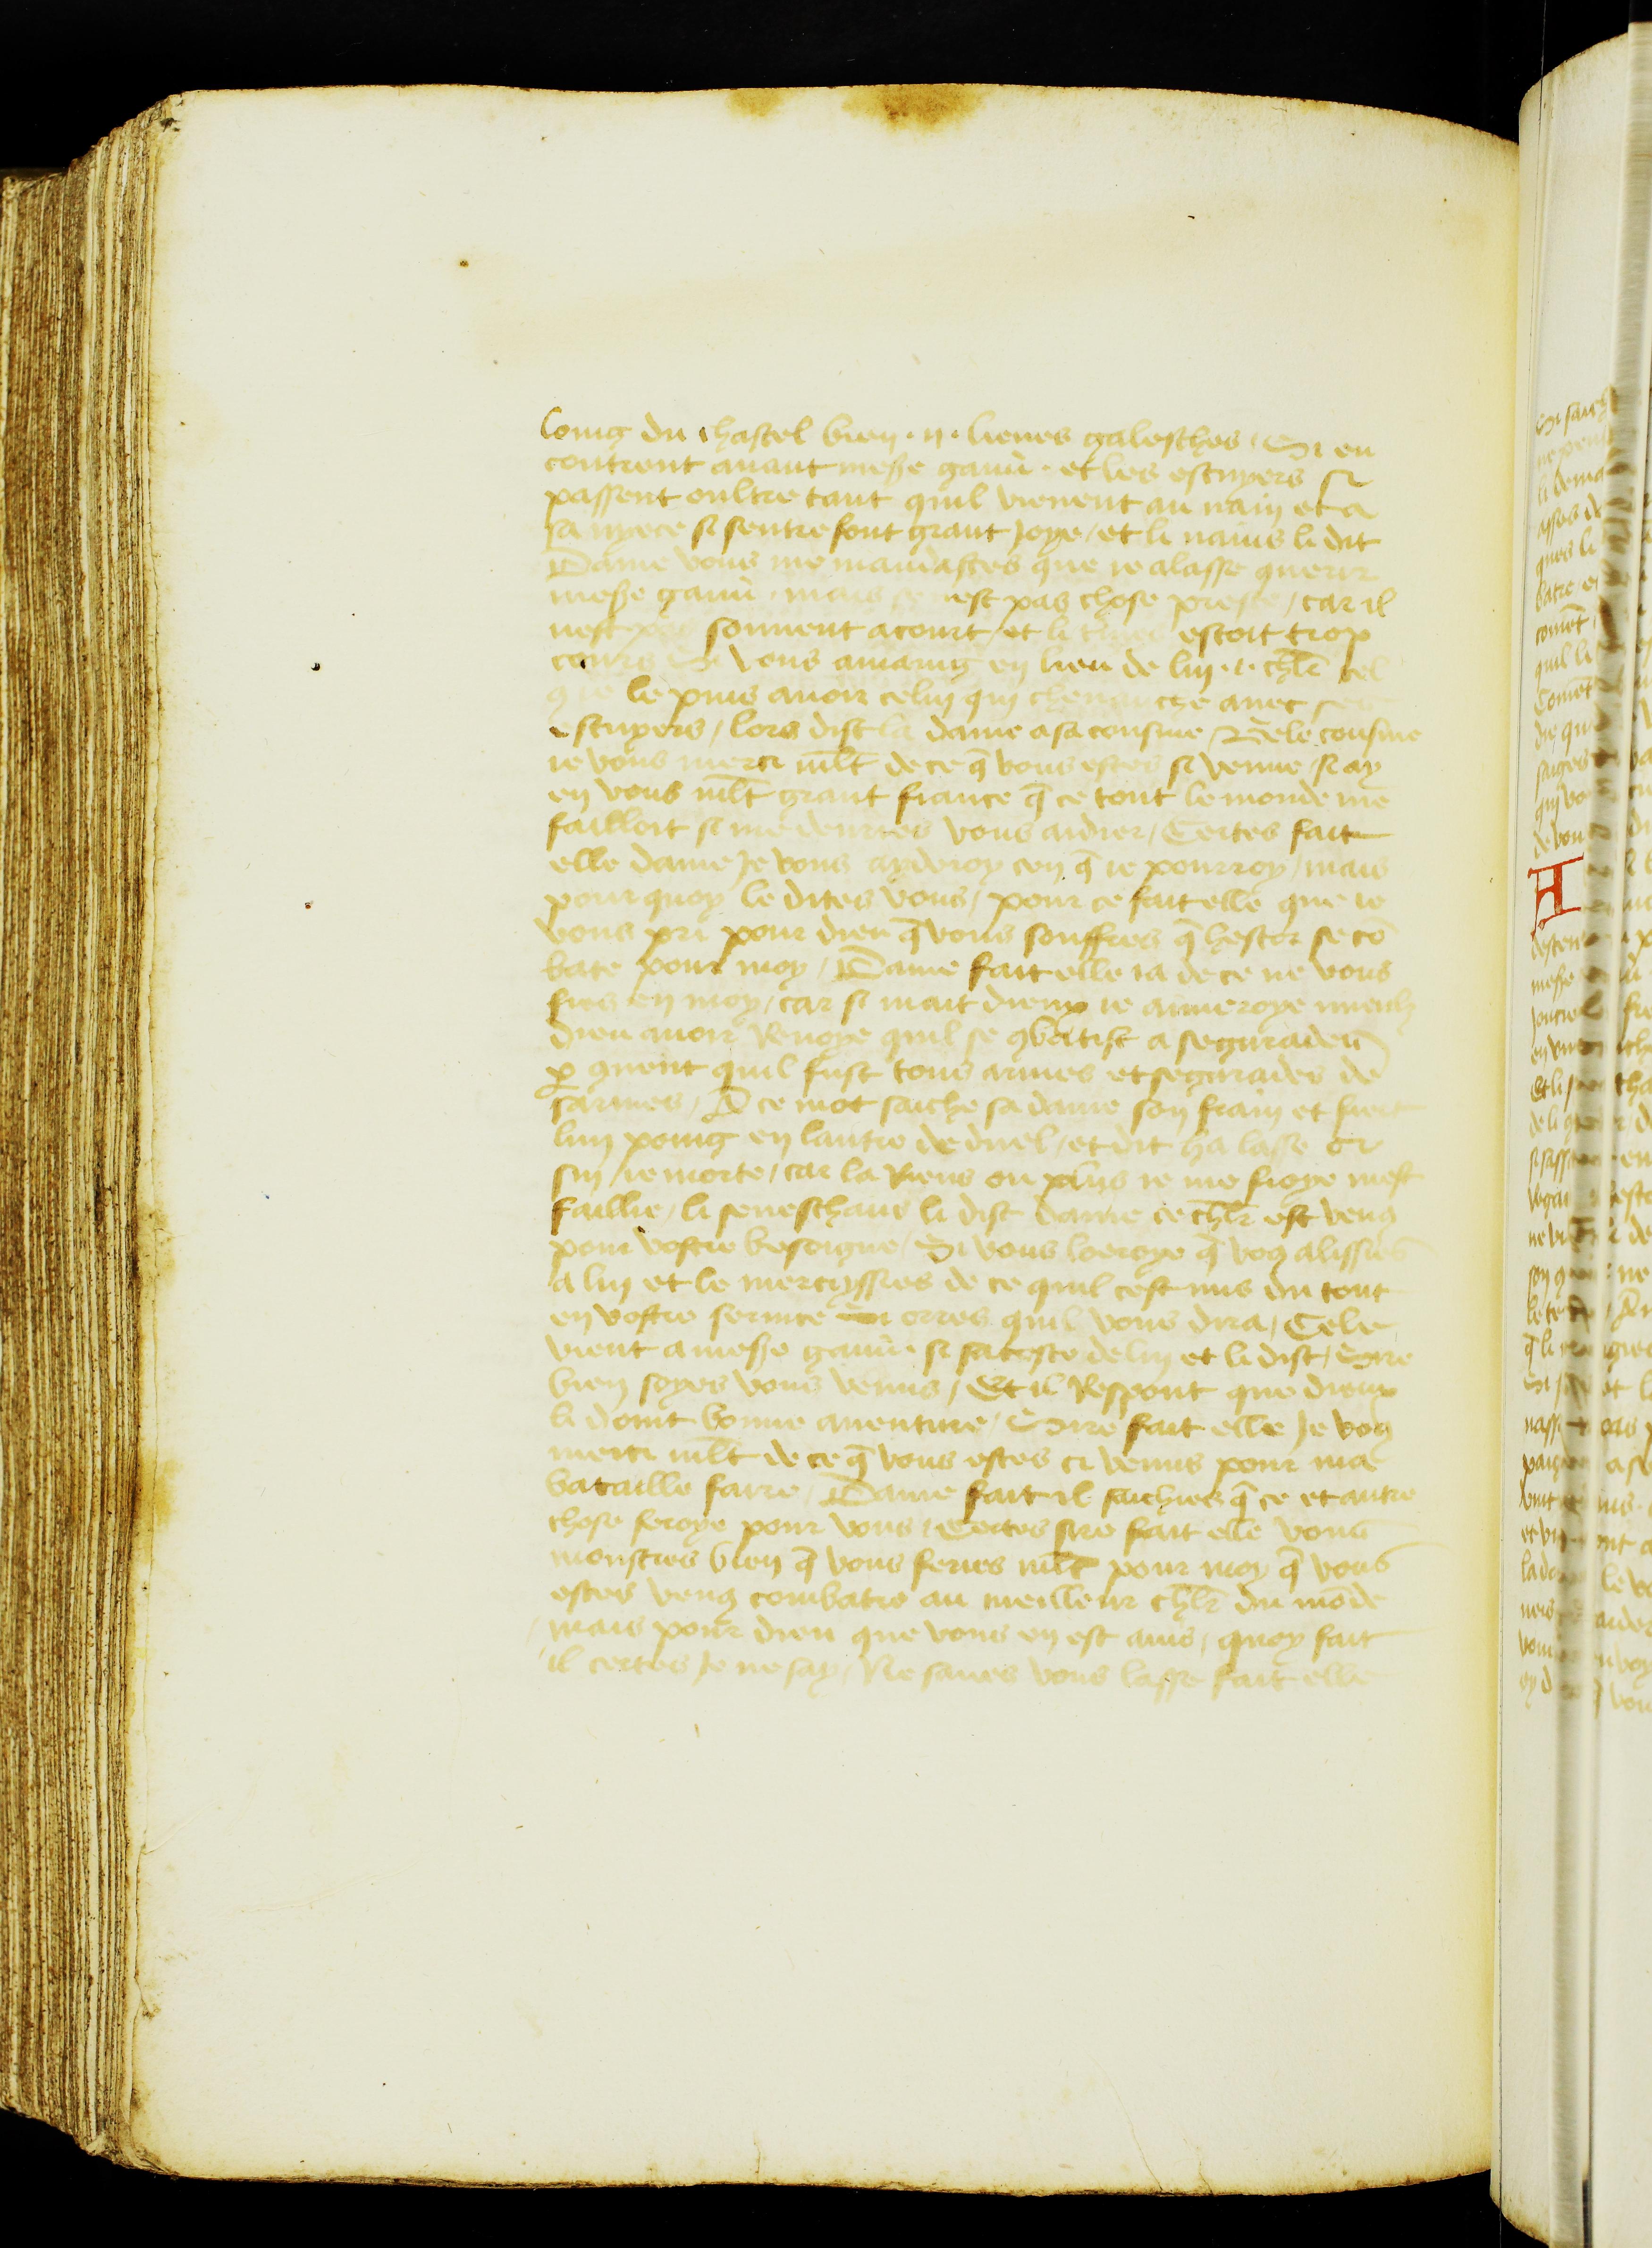 loing du chastel bien .ii. lieues galesches / Si en
contrent auant messe gauū . et les escuyers si
passent oultre tant quil vienent au nain et a
sa nyece si sentrefont grant joye / et li nains li dit
Dame vous me mandastes que ie alasse querir
messe gauū . mais ce nest pas chose preste / car il
nest pas souuent a court / et li termes estoit trop
cours Si vous amaing en lieu de luy .i. chlr tel
q ie le puis auoir celui qui cheuauche auec ses
escuyers / lors dist la dame a sa cousine / Bele cousine
ie vous merci mlt de ce q̄ vous estes si venue / si ay
en vous mlt grant fiance q̄ ce tout le monde me
failloit si me deuries vous aidier / Certes fait
elle dame Je vous ayderoy cen q̄ ie pourroy / mais
pour quoy le dites vous / pour ce fait elle que ie
vous pri pour dieu q̄ vous souffres q̄ hestor se cō
bate pour moy / Dame fait elle ia de ce ne vous
fies en moy / car si mait dieux ie aimeroye mieulz
dieu auoir Renoye quil se 9batist a seguradeū
p 9uent quil fust tous armes et segurades de
sarmes / A ce mot sache sa dame son frain et fiert
lun poing en lautre de duel / et dit ha lasse or
suy ie morte / car la Riens ou plus ie me fioye mest
faillie / li seneschaus li dist dame ce chlr est ven9
pour vostre besoigne / Si vous loeroye q̄ vo9 alissies
a luy et le mercyssies de ce quil cest mis du tout
en vostre seruice Si orres quil vous dira / Cele
vient a messe gauū . si sacoste de luy et li dist / Sire
bien soyes vous venus / Et il Respont que dieux
li doint bonne auenture / Sire fait elle Je vo9
merci mlt de ce q̄ vous estes ci venus pour ma
bataille faire / Dame fait il sachies q̄ ce et autre
chose feroye pour vous / Certes sire fait elle vous
monstres bien q̄ vous feries mlt pour moy q̄ vous
estes ven9 combatre au meilleur chlr du mōde
mais pour dieu que vous en est auis / quoy fait
il certes Je ne say / Ne saues vous lasse fait elle